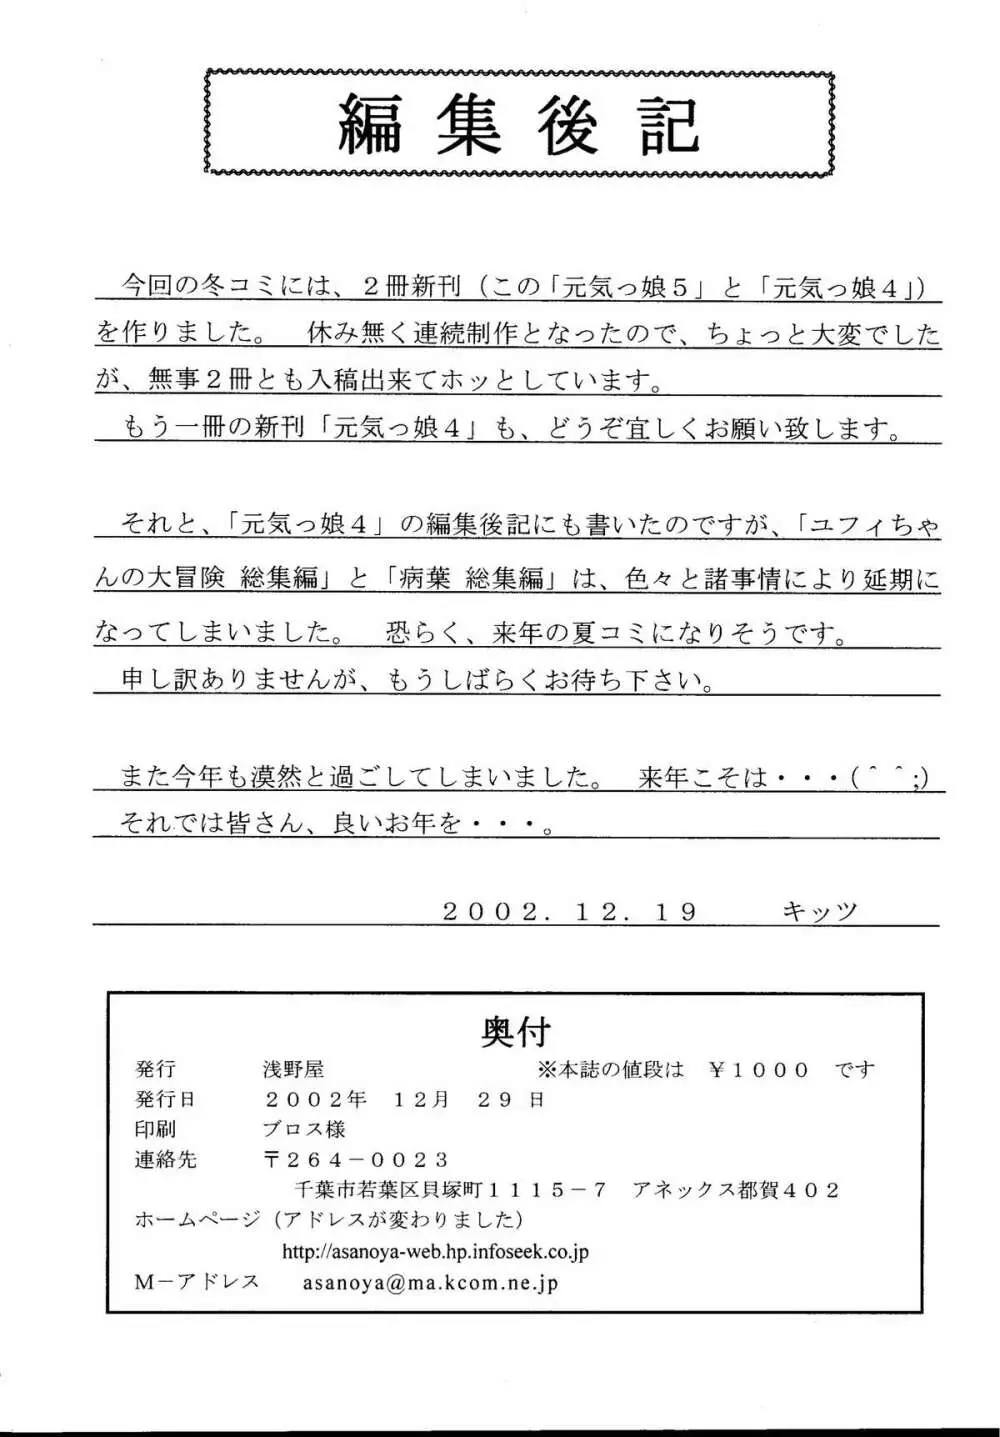 編集後記
今回の冬コミには、２冊新刊（この「元気っ娘５」と「元気っ娘４」）
を作りました。　休み無く連続制作となったので、ちょっと大変でした
が、無事２冊とも入稿出来てホッとしています。
もう一冊の新刊「元気っ娘４」も、どうぞ宜しくお願い致します。
それと、「元気っ娘４」の編集後記にも書いたのですが、「ユフィちゃ
んの大冒険 総集編」と「病葉 総集編」は、色々と諸事情により延期に
なってしまいました。　恐らく、来年の夏コミになりそうです。
申し訳ありませんが、もうしばらくお待ち下さい。
また今年も漠然と過ごしてしまいました。　来年こそは・・・(＾＾;)
それでは皆さん、良いお年を・・・。
２００２．１２．１９　　　キッツ
奥付
発行　　　　浅野屋　　　　　　　　　　※本誌の値段は　￥１０００　です
発行日　　　２００２年　１２月　２９日
印刷　　　　ブロス様
連絡先　　　〒２６４－００２３
千葉市若葉区貝塚町１１１５－７　アネックス都賀４０２
ホームページ（アドレスが変わりました）
http://asanoya-web.hp.infoseek.co.jp
Ｍ－アドレス　　asanoya@ma.kcom.ne.jp